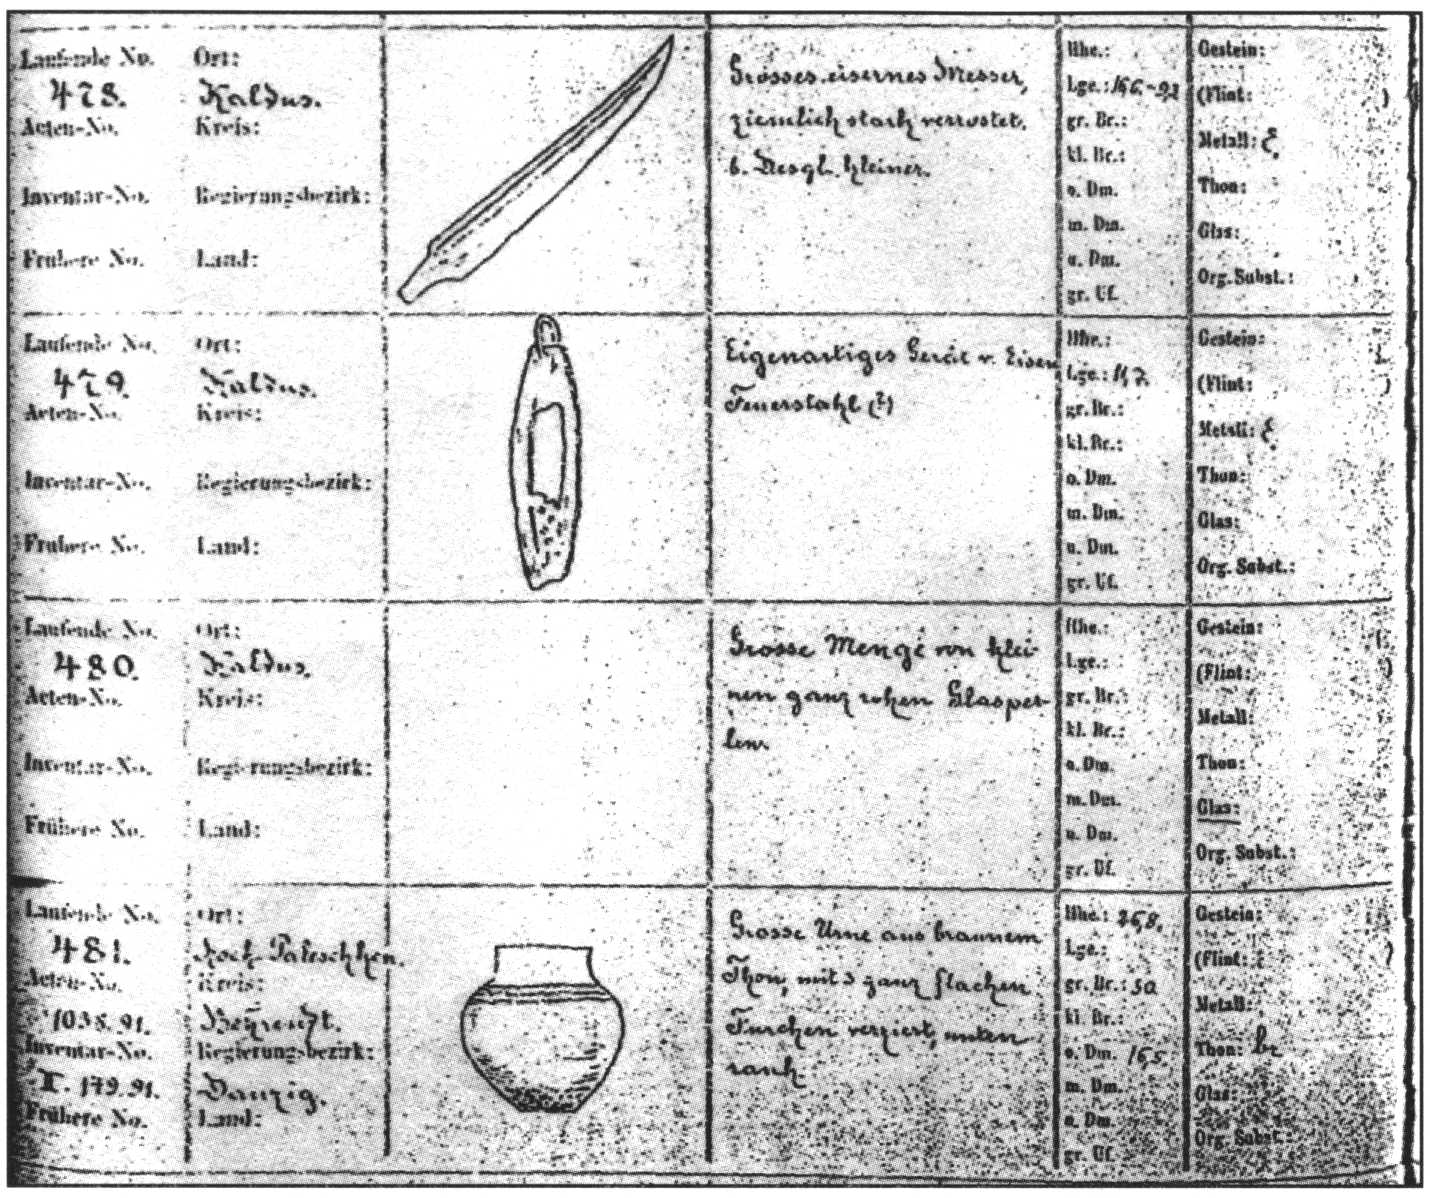 Laufende No. Ort: Grosses eisernes Messer, Hhe.: Gestein:
478. Kaldus. ziemlich stark verrostet. Lge.: (Flint: )
Acten-No. Kreis: b. Desgl. kleiner. gr. Br.: Metall: E.
kl. Br.:
Inventar-No. Regierungsbezirk: o. Dm. Thon:
m. Dm. Glas:
Frühere No. Land: u. Dm. Org. Subst.:
gr. Uf.
Laufende No. Ort: Eigenartiges Gerät v. Eisen Hhe.: Gestein:
479. Kaldus. Feuerstahl (?) Lge.: (Flint: )
Acten-No. Kreis: gr. Br.: Metall: E.
kl. Br.:
Inventar-No. Regierungsbezirk: o. Dm. Thon:
m. Dm. Glas:
Frühere No. Land: u. Dm. Org. Subst.:
gr. Uf.
Laufende No. Ort: Grosse Menge von klei- Hhe.: Gestein:
480. Kaldus. nen ganz rohen Glasper- Lge.: (Flint: )
Acten-No. Kreis: len. gr. Br.: Metall:
kl. Br.:
Inventar-No. Regierungsbezirk: o. Dm. Thon:
m. Dm. Glas:
Frühere No. Land: u. Dm. Org. Subst.:
gr. Uf.
Laufende No. Ort: Grosse Urne aus braunem Hhe.: 26,8. Gestein:
481. Hoch Paleschken. Thon, mit 3 ganz flachen Lge.: (Flint: )
Acten-No. Kreis: Furchen verziert, unten gr. Br.: 30 Metall:
1038.91. Berendt. rauh. kl. Br.:
Inventar-No. Regierungsbezirk: o. Dm. 16,5 Thon: br
II. 179.91. Danzig. m. Dm. Glas:
Frühere No. Land: u. Dm. Org. Subst.:
gr. Uf.